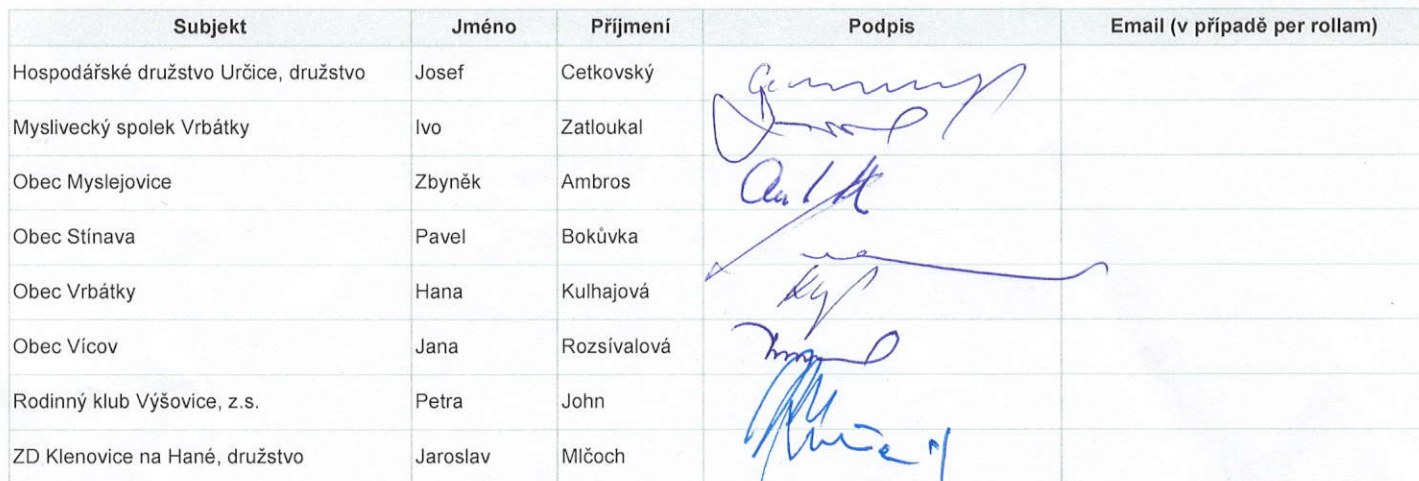 Subjekt Jméno Příjmení Podpis Email (v případě per rollam)
Hospodářské družstvo Určice, družstvo Josef Cetkovský
Myslivecký spolek Vrbátky Ivo Zatloukal
Obec Myslejovice Zbyněk Ambros
Obec Stínava Pavel Bokůvka
Obec Vrbátky Hana Kulhajová
Obec Vícov Jana Rozsívalová
Rodinný klub Výšovice, z.s. Petra John
ZD Klenovice na Hané, družstvo Jaroslav Mlčoch